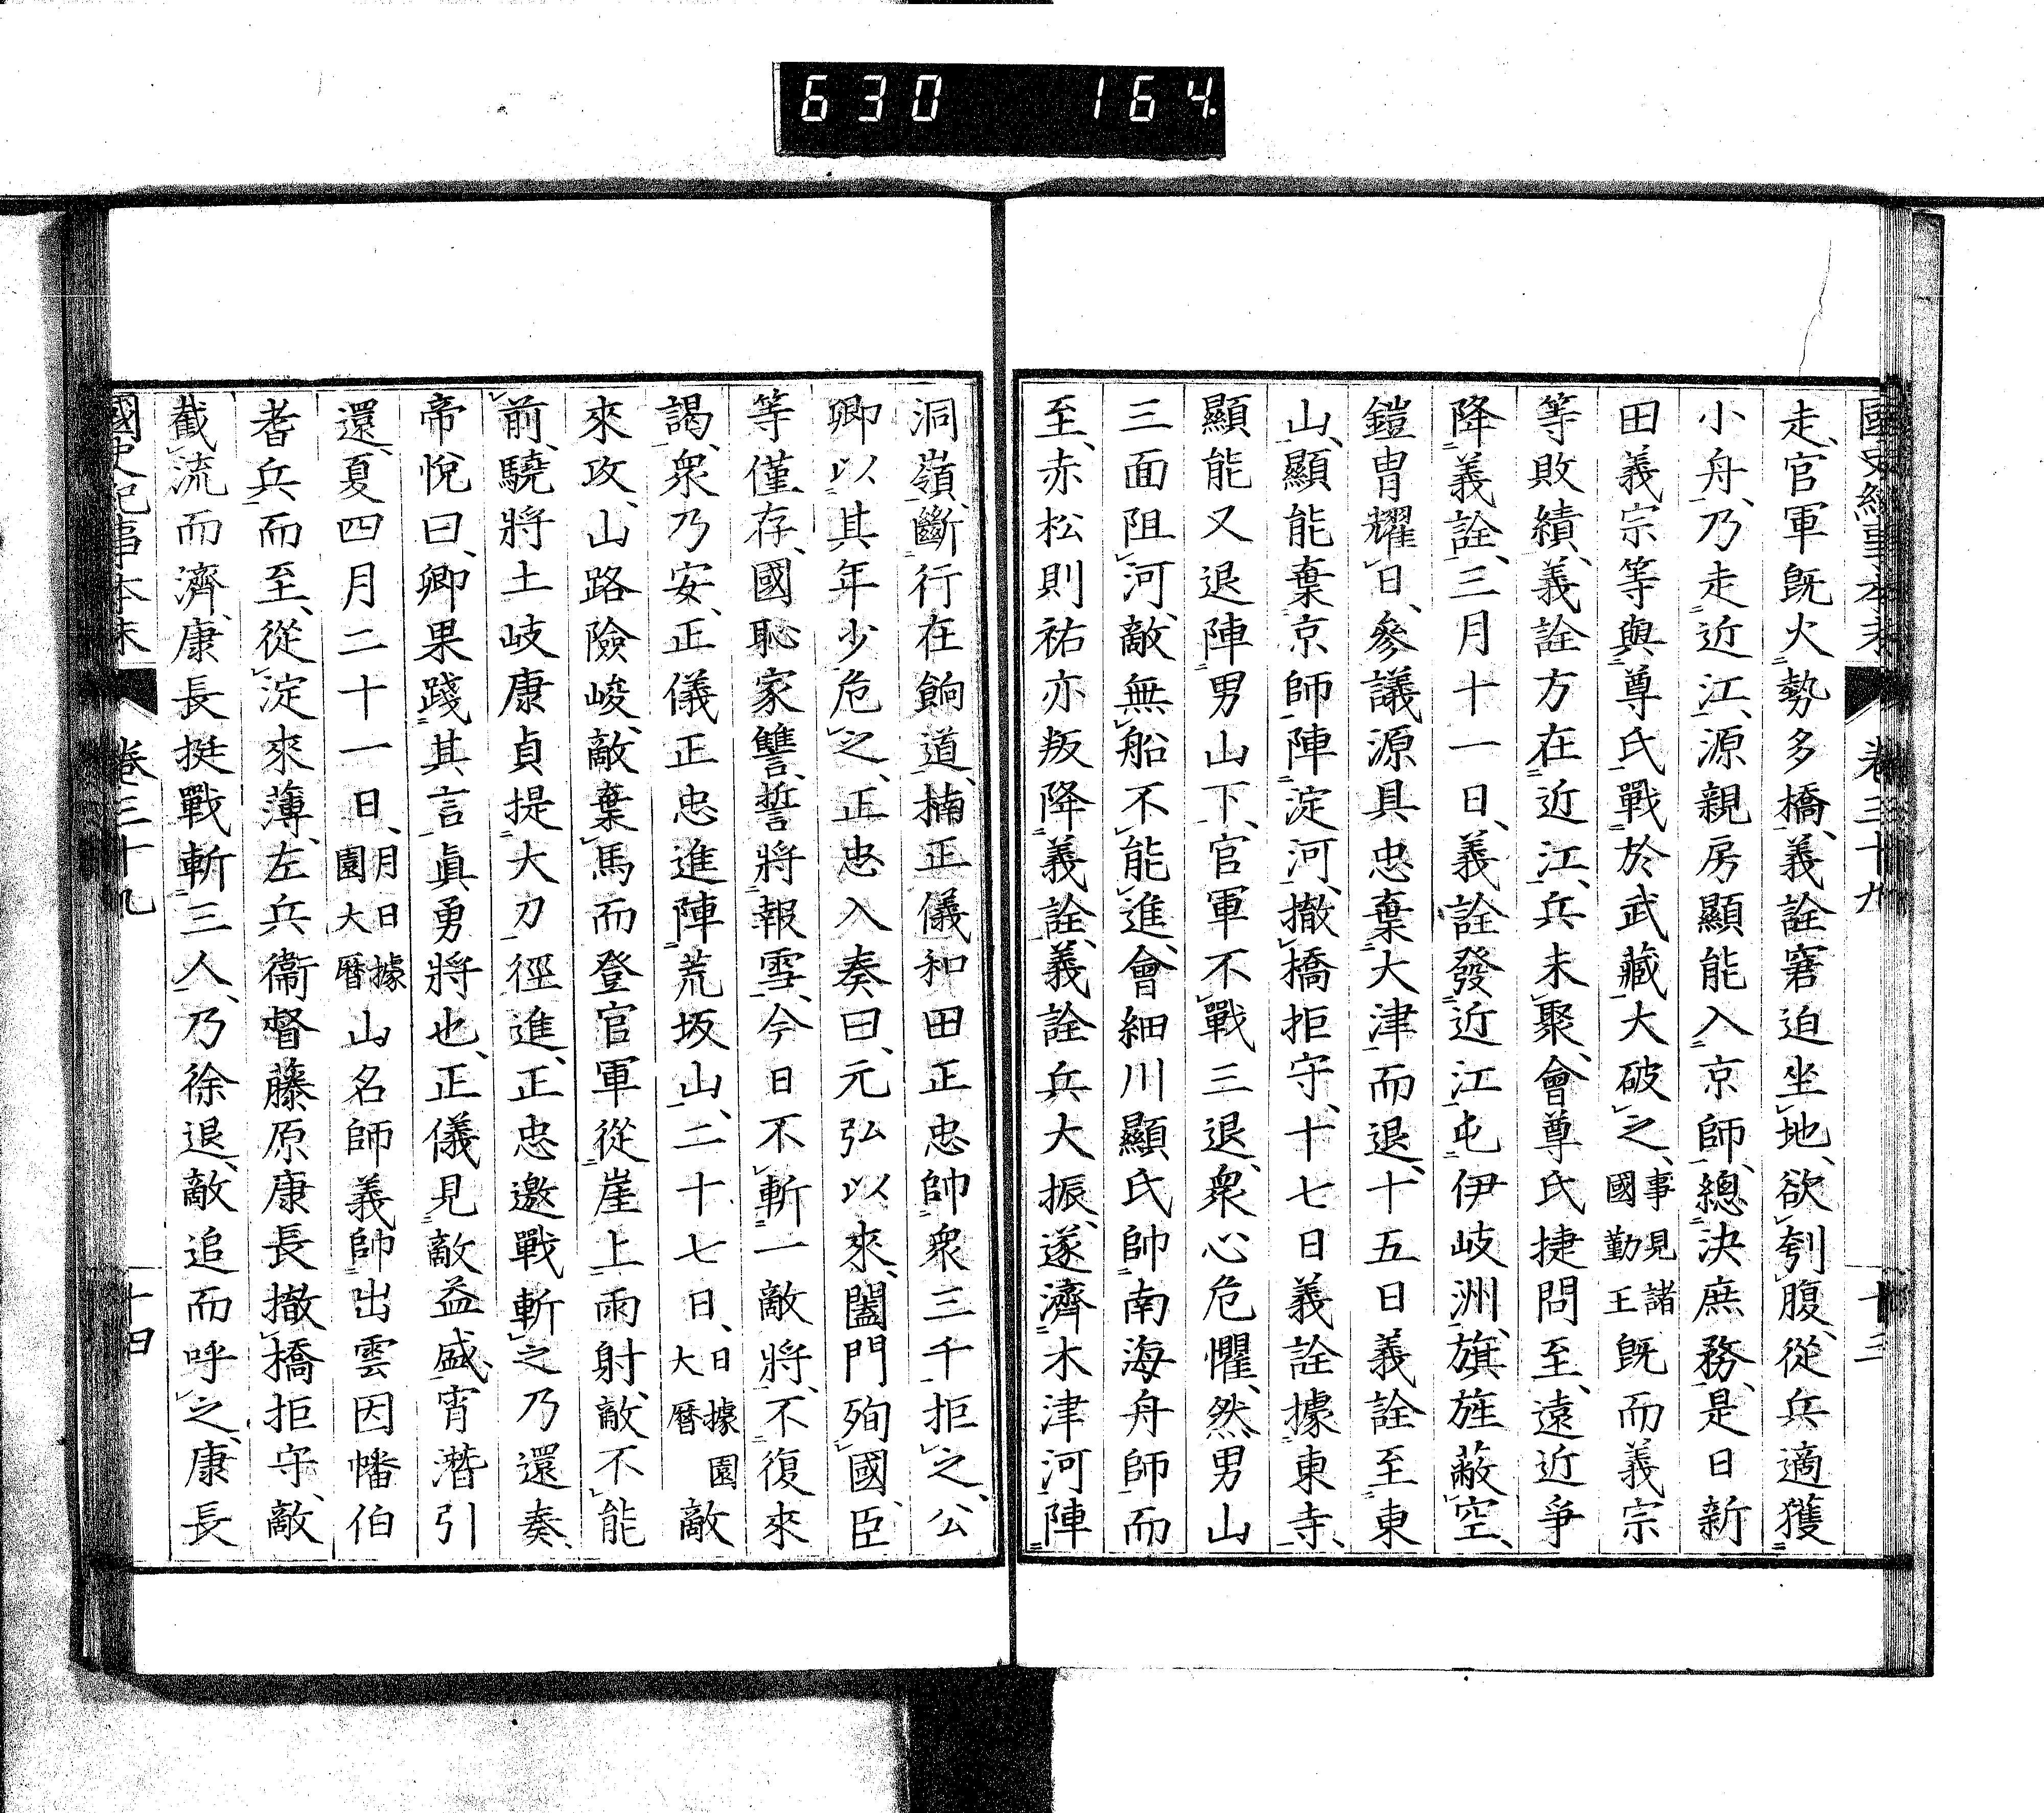 630 164.
國史紀事本末 卷三十九 十三
走、官軍既火勢多橋、義詮窘迫坐地、欲刳腹、從兵適獲
小舟、乃走近江、源親房顯能入京師、總決庶務、是日新
田義宗等與尊氏戰於武藏大破之、事見諸國勤王既而義宗
等敗績、義詮方在近江、兵未聚、會尊氏捷問至、遠近爭
降義詮、三月十一日、義詮發近江、屯伊岐洲、旗旌蔽空、
鎧冑耀日、參議源具忠棄大津而退、十五日義詮至東
山、顯能棄京師陣淀河、撤橋拒守、十七日義詮據東寺、
顯能又退陣男山下、官軍不戰三退、衆心危懼、然男山
三面阻河、敵無船不能進、會細川顯氏帥南海舟師而
至、赤松則祐亦叛降義詮、義詮兵大振、遂濟木津河陣
洞嶺、斷行在餉道、楠正儀和田正忠帥衆三千拒之、公
卿以其年少危之、正忠入奏曰、元弘以來、闔門殉國、臣
等僅存、國恥家讐、誓將報雪、今日不斬一敵將、不復來
謁、衆乃安、正儀正忠進陣荒坂山、二十七日、日據園大曆敵
來攻、山路險峻、敵棄馬而登官軍從崖上雨射、敵不能
前、驍將土岐康貞提大刀徑進、正忠邀戰斬之乃還奏、
帝悅曰、卿果踐其言、眞勇將也、正儀見敵益盛、宵潛引
還、夏四月二十一日、月日據園大曆山名師義帥出雲因幡伯
耆兵、而至、從淀來薄、左兵衞督藤原康長撤橋拒守、敵
截流而濟、康長挺戰斬三人、乃徐退、敵追而呼之、康長
國史紀事本末 卷三十九 十四